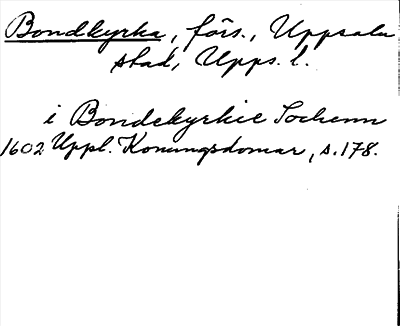 Bondkyrka, förs., Uppsala
stad, Upps. l.
i Bondekyrkie Sochenn
1602 Uppl. Konungsdomar, s. 178.